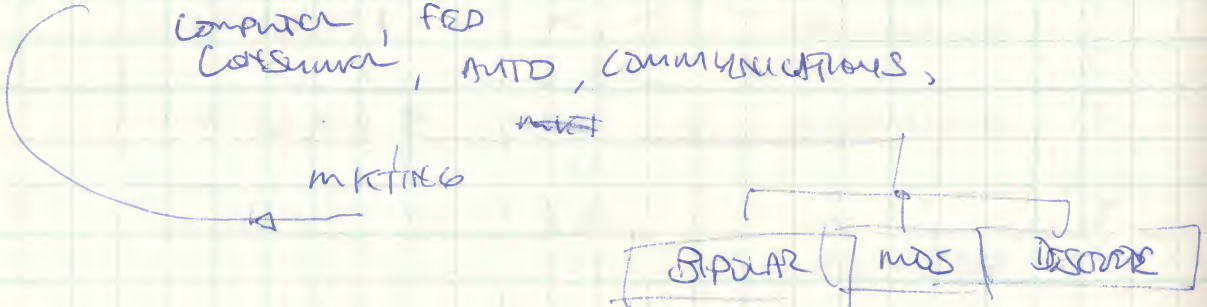 COMPUTER, FED
CONSUMER, AUTO, COMMUNICATIONS,
MKTING
BIPOLAR MOS DISCRETE